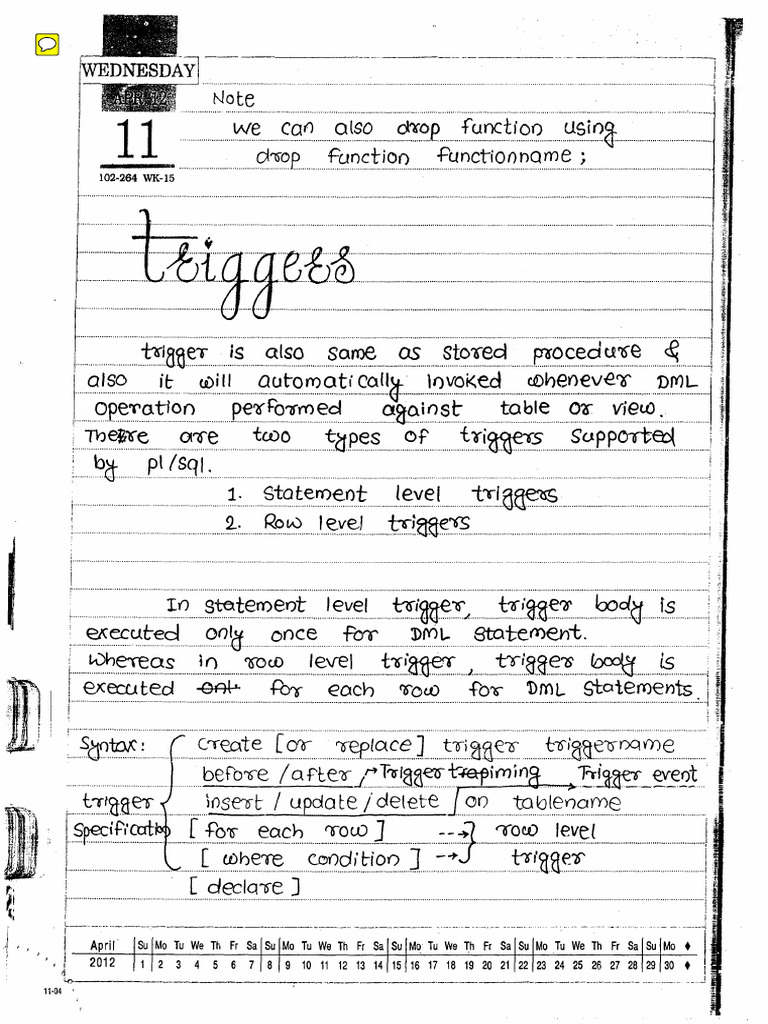 WEDNESDAY
APR '12
11
102-264 WK-15
Note
we can also drop function using
drop function functionname ;
triggers
trigger is also same as stored procedure &
also it will automatically invoked whenever DML
operation performed against table or view.
There are two types of triggers supported
by pl/sql.
1. Statement level triggers
2. Row level triggers
In statement level trigger, trigger body is
executed only once for DML statement.
Whereas in row level trigger, trigger body is
executed for each row for DML statements.
Syntax: create [or replace] trigger triggername
before / after → Trigger timing Trigger event
trigger insert / update / delete / on tablename
Specification [ for each row ] ---> row level
[ where condition ] --> trigger
[ declare ]
April Su Mo Tu We Th Fr Sa Su Mo Tu We Th Fr Sa Su Mo Tu We Th Fr Sa Su Mo Tu We Th Fr Sa Su Mo ♦
2012 1 2 3 4 5 6 7 8 9 10 11 12 13 14 15 16 17 18 19 20 21 22 23 24 25 26 27 28 29 30 ♦
11-04